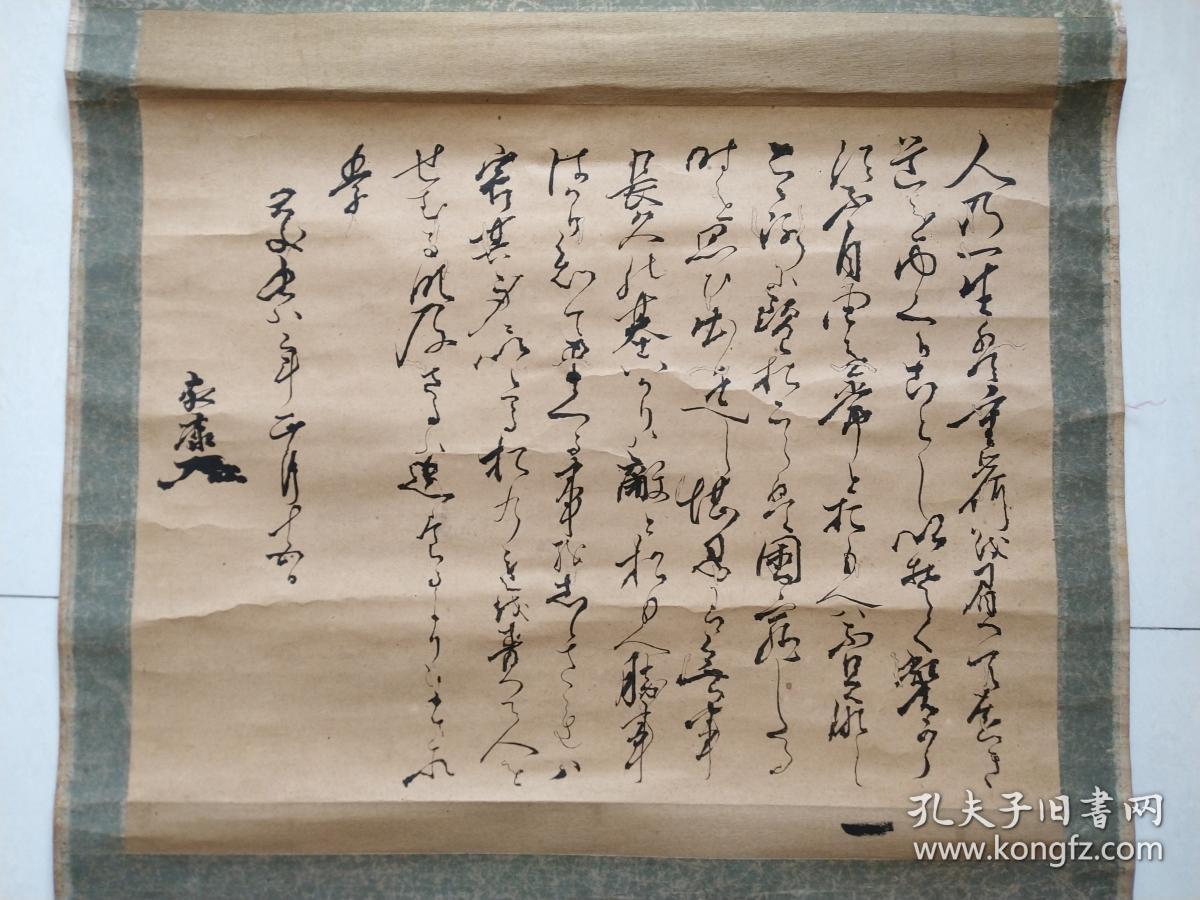 人乃一生ハ重荷越負て遠き
道をゆくかことしいそくへから
須不自由を常とおもへハ不足那し
こゝ路に望おこらは困窮したる
時を思ひ出すへし堪忍ハ無事
長久能基いかりハ敵とおもへ勝事
はかり知てまくる事越志らされハ
害其身にいたるおのれ越責て人を
せむる那及さるハ過たるよりまされ
李
慶長八年正月十五日
家康
孔夫子旧书网
www.kongfz.com